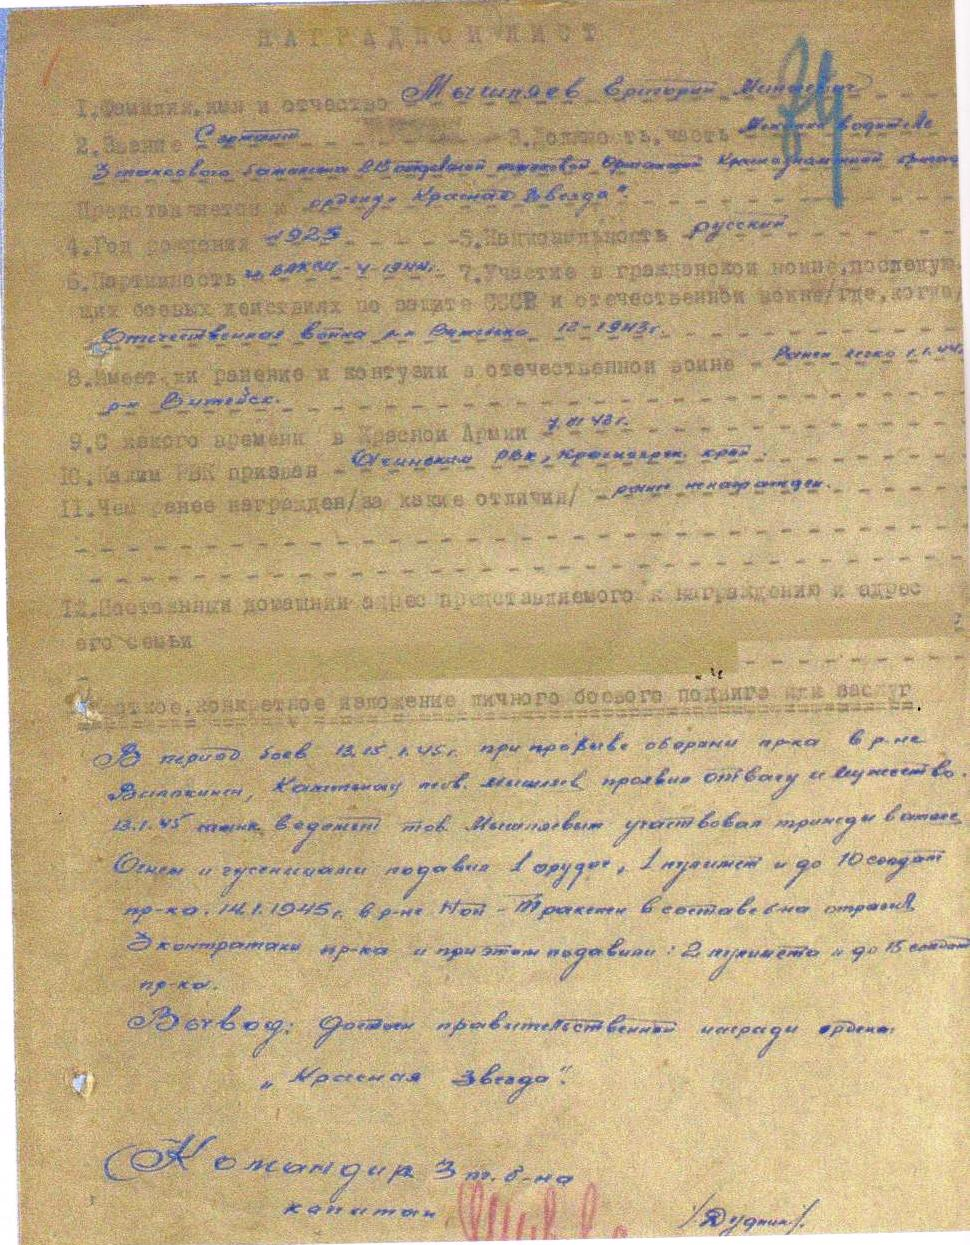 НАГРАДНОЙ ЛИСТ
1.Фамилия,имя и отчество Мышляев Григорий
2.Звание Сержант 3.Должность,часть Механик водитель
3 танкового батальона отдельной танковой Краснознаменной бригады
Представляется к ордену "Красная Звезда".
4.Год рождения 1925 5.Национальность русский
6.Партийность чл. ВЛКСМ - V-1944г. 7.Участие в гражданской войне,последую
щих боевых действиях по защите СССР и отечественной войне/где,когда/
Отечественная война р-н Витебска 12-1943г.
8.Имеет ли ранение и контузии в отечественной войне - Ранен легко 1.44.
р-н Витебск.
9.С какого времени в Красной Армии 43г.
10.Каким РВК призван - Ачинским РВК, Красноярск. край.
11.Чем ранее награжден/за какие отличия/ - ранее ненагражден.
12.Постоянный домашний адрес представляемого к награждению и адрес
его семьи
Краткое,конкретное изложение личного боевого подвига или заслуг.
В период боев 13.15.1.45г. при прорыве обороны пр-ка в р-не
Каттенау тов. Мышляев проявил отвагу и мужество.
13.1.45 танк ведомый тов. Мышляевым участвовал трижды в атаке
Огнем и гусеницами подавил 1 орудие, 1 пулимет и до 10 солдат
пр-ка. 14.1.1945г. в р-не Тракенен в составе б-на отразил
3 контратаки пр-ка и при этом подавили: 2 пулимета и до 15 солдат
пр-ка.
Вывод: достоин правительственной награды ордена
„Красная Звезда".
Командир 3 т.б-на
капитан /Дудник/.